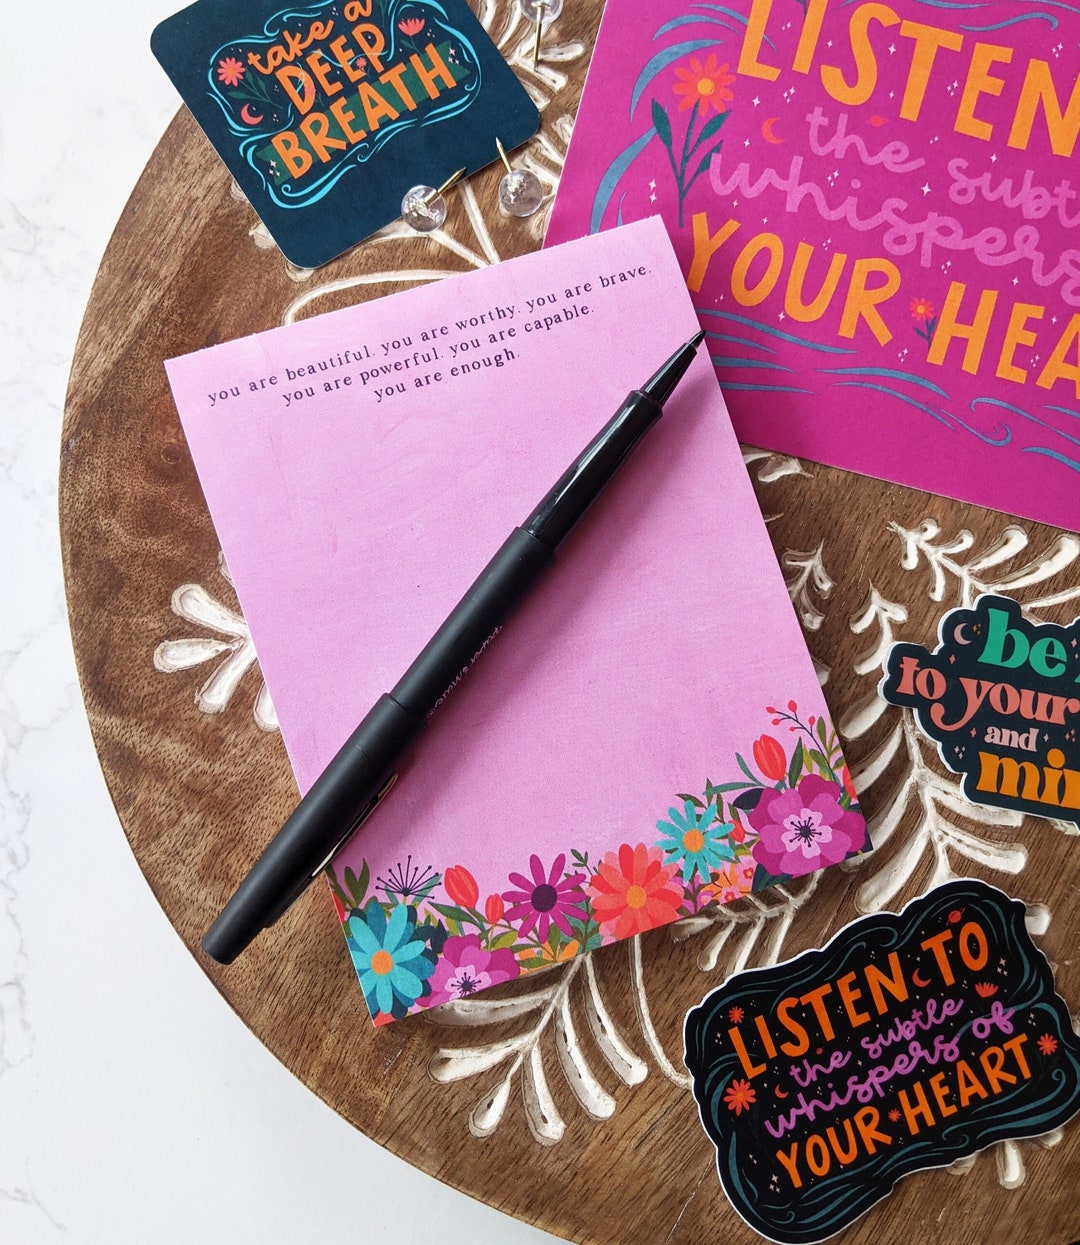 take a
DEEP
BREATH
LISTEN
the subt
whispers
YOUR HEA
you are beautiful. you are worthy. you are brave.
you are powerful. you are capable.
you are enough.
be
to your
and
mi
LISTEN TO
the subtle
whispers of
YOUR HEART